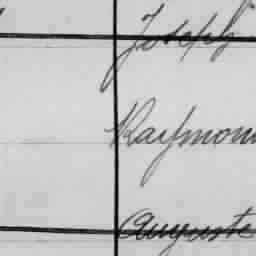 Joseph
Raymon
Auguste